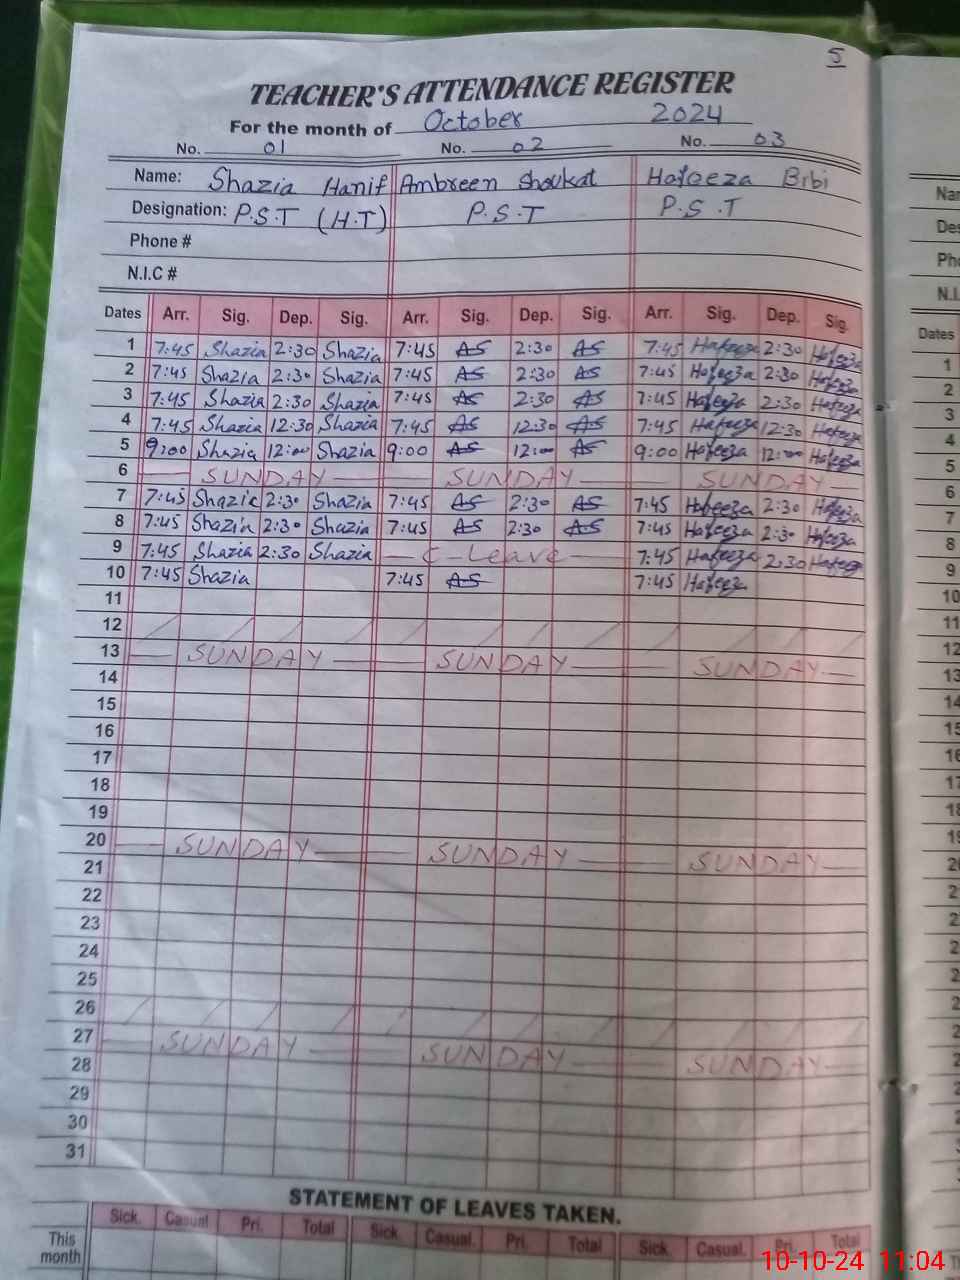 5
TEACHER'S ATTENDANCE REGISTER
For the month of October 2024
No. 01 No. 02 No. 03
Name: Shazia Hanif Ambreen Shoukat Hafeeza Bibi
Designation: P.S.T (H.T) P.S.T P.S.T
Phone #
N.I.C #
Dates Arr. Sig. Dep. Sig. Arr. Sig. Dep. Sig. Arr. Sig. Dep. Sig.
1 7:45 Shazia 2:30 Shazia 7:45 AS 2:30 AS 7:45 Hafeeza 2:30 Hafeeza
2 7:45 Shazia 2:30 Shazia 7:45 AS 2:30 AS 7:45 Hafeeza 2:30 Hafeeza
3 7:45 Shazia 2:30 Shazia 7:45 AS 2:30 AS 7:45 Hafeeza 2:30 Hafeeza
4 7:45 Shazia 12:30 Shazia 7:45 AS 12:30 AS 7:45 Hafeeza 12:30 Hafeeza
5 9:00 Shazia 12:00 Shazia 9:00 AS 12:00 AS 9:00 Hafeeza 12:00 Hafeeza
6 SUNDAY SUNDAY SUNDAY
7 7:45 Shazia 2:30 Shazia 7:45 AS 2:30 AS 7:45 Hafeeza 2:30 Hafeeza
8 7:45 Shazia 2:30 Shazia 7:45 AS 2:30 AS 7:45 Hafeeza 2:30 Hafeeza
9 7:45 Shazia 2:30 Shazia C-Leave 7:45 Hafeeza 2:30 Hafeeza
10 7:45 Shazia 7:45 AS 7:45 Hafeeza
11
12
13 SUNDAY SUNDAY SUNDAY
14
15
16
17
18
19
20 SUNDAY SUNDAY SUNDAY
21
22
23
24
25
26
27 SUNDAY SUNDAY SUNDAY
28
29
30
31
STATEMENT OF LEAVES TAKEN.
Sick. Casual Pri. Total Sick. Casual. Pri. Total Sick. Casual. Pri. Total
This month
10-10-24 11:04
Dates
1
2
3
4
5
6
7
8
9
10
11
12
13